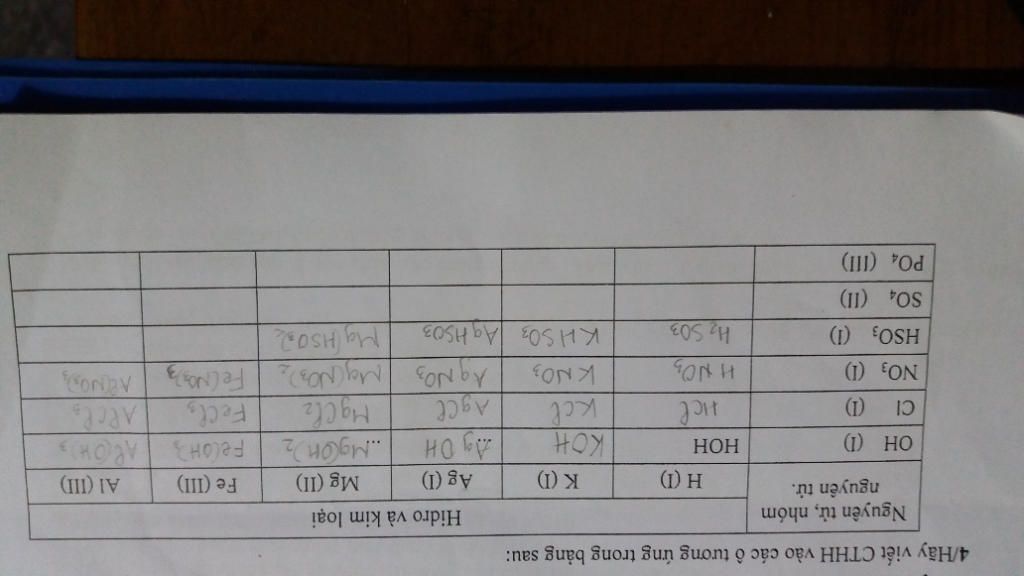 4/Hãy viết CTHH vào các ô tương ứng trong bảng sau:
Nguyên tử, nhóm nguyên tử. Hidro và kim loại
H (I) K (I) Ag (I) Mg (II) Fe (III) Al (III)
OH (I) HOH KOH AgOH Mg(OH)₂ Fe(OH)₃ Al(OH)₃
Cl (I) HCl KCl AgCl MgCl₂ FeCl₃ AlCl₃
NO₃ (I) HNO₃ KNO₃ AgNO₃ Mg(NO₃)₂ Fe(NO₃)₃ Al(NO₃)₃
HSO₃ (I) H₂SO₃ KHSO₃ AgHSO₃ Mg(HSO₃)₂
SO₄ (II)
PO₄ (III)